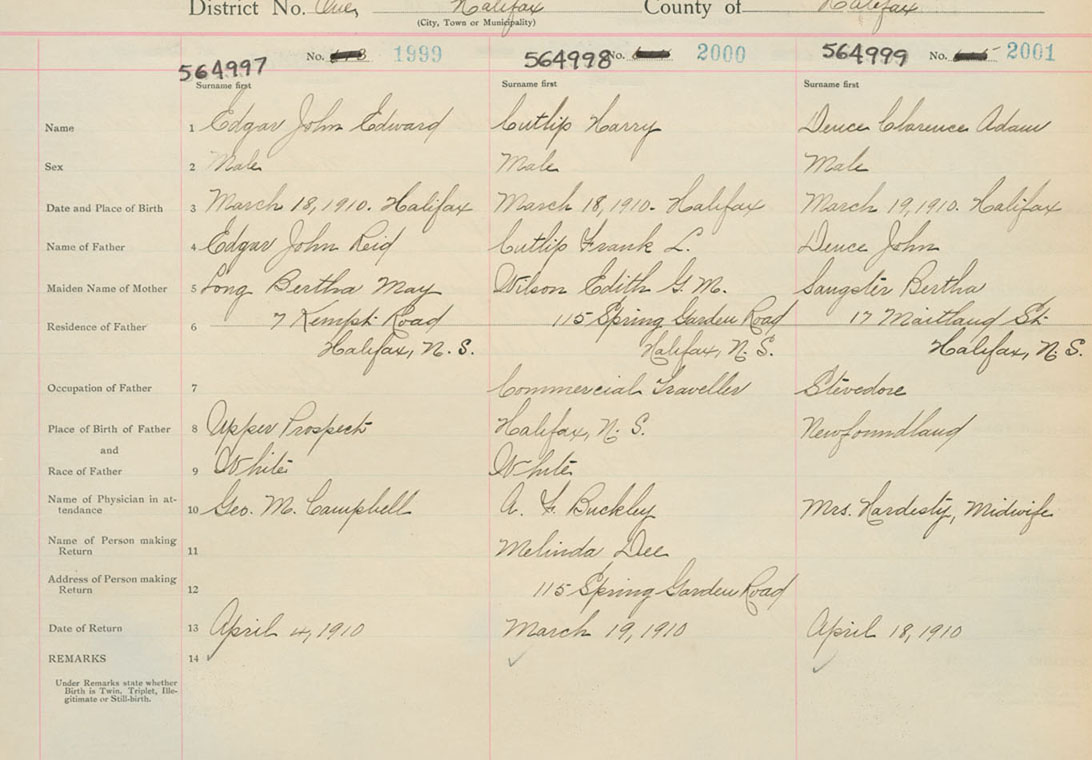 District No. One, Halifax County of Halifax
(City, Town or Municipality)
No. 1999 No. 2000 No. 2001
564997 564998 564999
Surname first Surname first Surname first
Name 1 Edgar John Edward Cutlip Harry Deuce Clarence Adam
Sex 2 Male Male Male
Date and Place of Birth 3 March 18, 1910. Halifax March 18, 1910. Halifax March 19, 1910. Halifax
Name of Father 4 Edgar John Reid Cutlip Frank L. Deuce John
Maiden Name of Mother 5 Long Bertha May Wilson Edith G. M. Sangster Bertha
Residence of Father 6 7 Kempt Road 115 Spring Garden Road 17 Maitland St.
Halifax, N. S. Halifax, N. S. Halifax, N. S.
Occupation of Father 7 Commercial Traveller Stevedore
Place of Birth of Father 8 Upper Prospect Halifax, N. S. Newfoundland
and
Race of Father 9 White White
Name of Physician in at-
tendance 10 Geo. M. Campbell A. F. Buckley Mrs. Hardesty, Midwife
Name of Person making
Return 11 Melinda Dee
Address of Person making
Return 12 115 Spring Garden Road
Date of Return 13 April 4, 1910 March 19, 1910 April 18, 1910
REMARKS 14
Under Remarks state whether
Birth is Twin. Triplet, Ille-
gitimate or Still-birth.